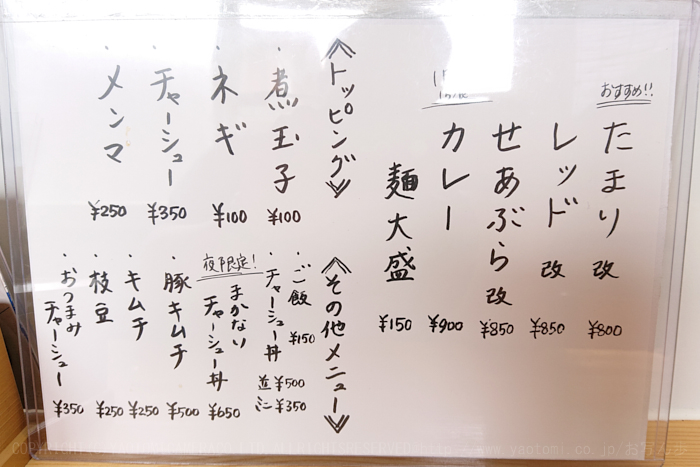 おすすめ!!
たまり 改 ¥800
レッド 改 ¥850
せあぶら 改 ¥850
カレー ¥900
麺大盛 ¥150
《トッピング》
・煮玉子 ¥100
・ネギ ¥100
・チャーシュー ¥350
・メンマ ¥250
《その他メニュー》
・ご飯 ¥150
・チャーシュー丼 並 ¥500
ミニ ¥350
夜限定!
まかないチャーシュー丼 ¥650
・豚キムチ ¥500
・キムチ ¥250
・枝豆 ¥250
・おつまみチャーシュー ¥350
www.yaotomi.co.jp/